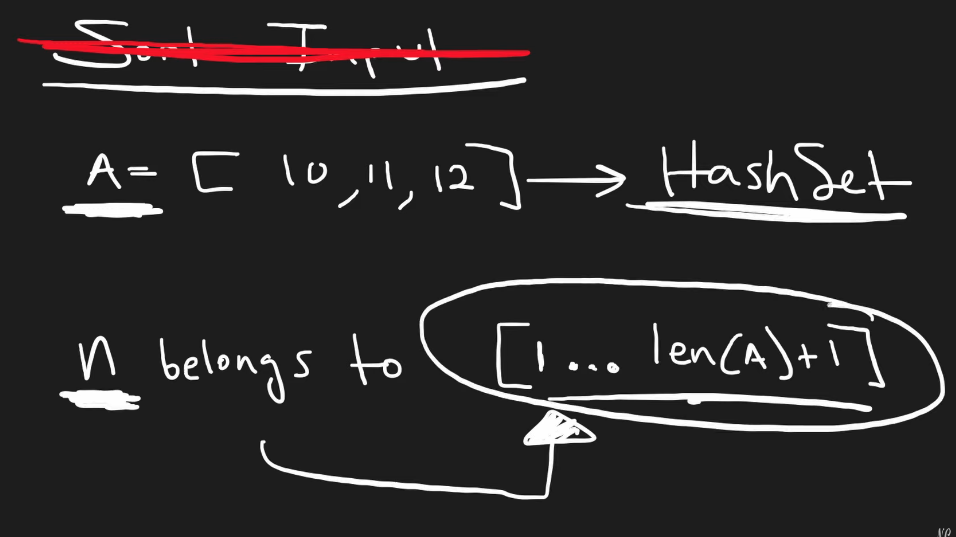 Sort Input
A = [ 10, 11, 12 ] → HashSet
n belongs to [1... len(A)+1]